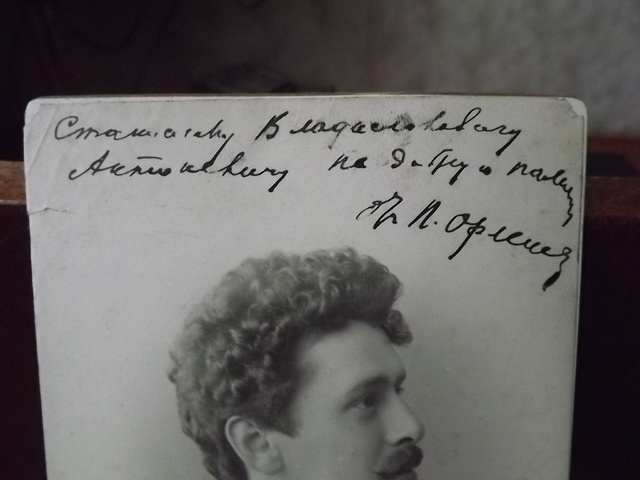 Станиславу Владиславовичу
Антоневичу на добрую память
П. Орленев